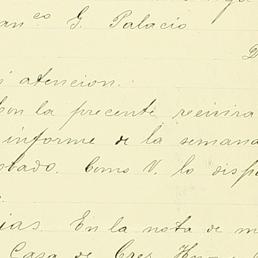 an^co G. Palacio
D
i atencion.
Con la presente recivira
informe de la semana
obado. Como V. lo disp
ias. En la nota de m
Casa de